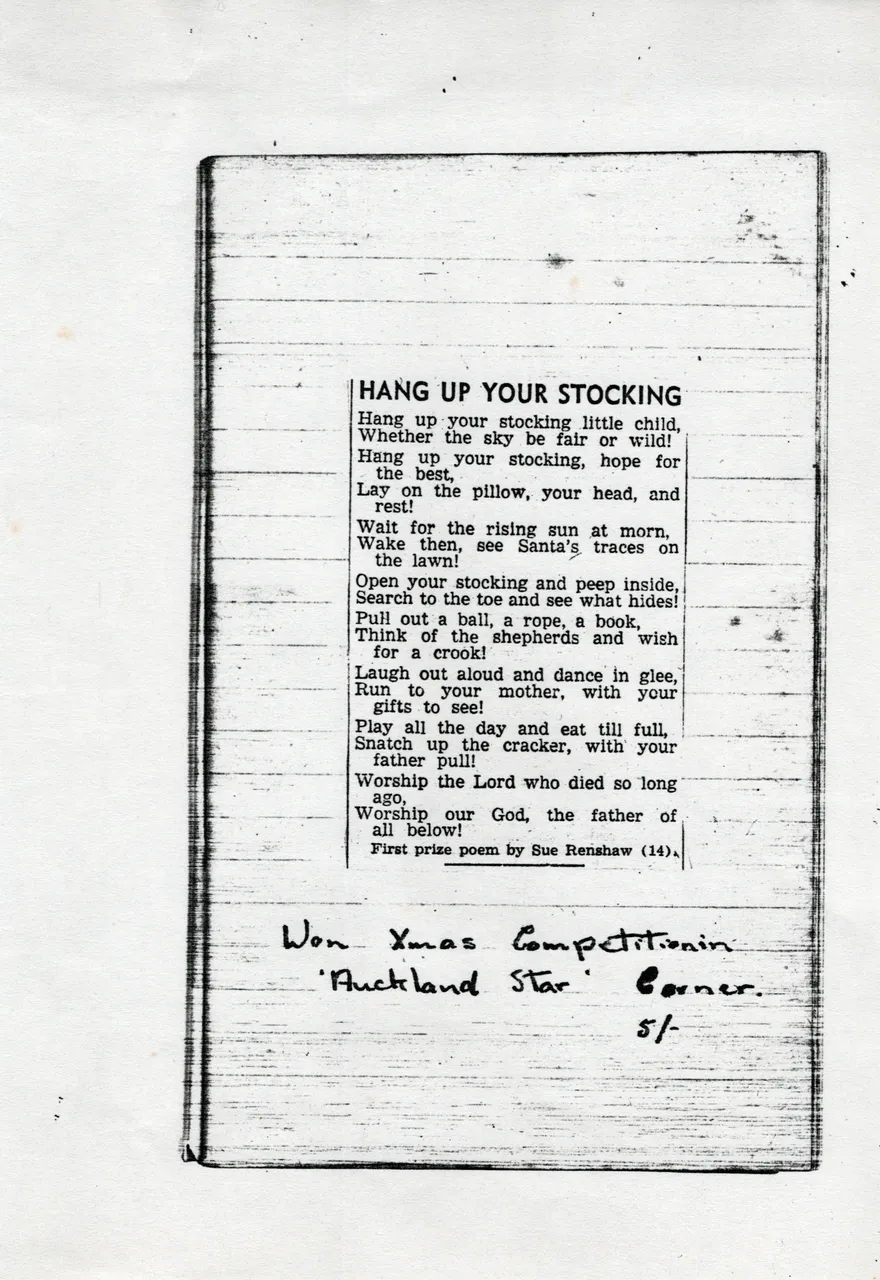 HANG UP YOUR STOCKING
Hang up your stocking little child,
Whether the sky be fair or wild!
Hang up your stocking, hope for
the best,
Lay on the pillow, your head, and
rest!
Wait for the rising sun at morn,
Wake then, see Santa's traces on
the lawn!
Open your stocking and peep inside,
Search to the toe and see what hides!
Pull out a ball, a rope, a book,
Think of the shepherds and wish
for a crook!
Laugh out aloud and dance in glee,
Run to your mother, with your
gifts to see!
Play all the day and eat till full,
Snatch up the cracker, with your
father pull!
Worship the Lord who died so long
ago,
Worship our God, the father of
all below!
First prize poem by Sue Renshaw (14).
Won Xmas Competition in
'Auckland Star' Corner.
5/-